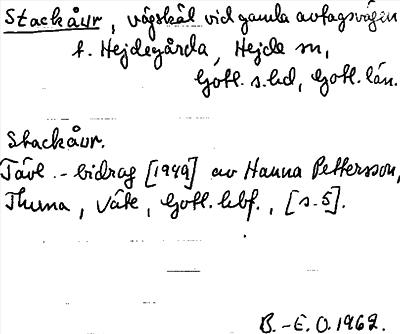 Stackåur, vägskäl vid gamla avtagsvägen
t. Hejdegårda, Hejde sn,
Gotl. s. hd, Gotl. län.
Stackåur.
Tävl.-bidrag [1949] av Hanna Pettersson,
Thuma, Väte, Gotl. hbf., [s. 5].
B.-E. O. 1962.